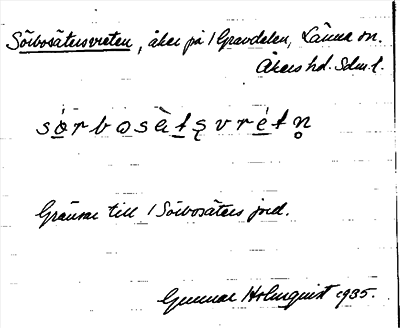 Sörbosätersvreten, åker på 1 Gravdelen, Länna sn.
Åkers hd. Sdm.l.
Gränsar till 1 Sörbosäters jord.
Gunnar Holmquist 1935.